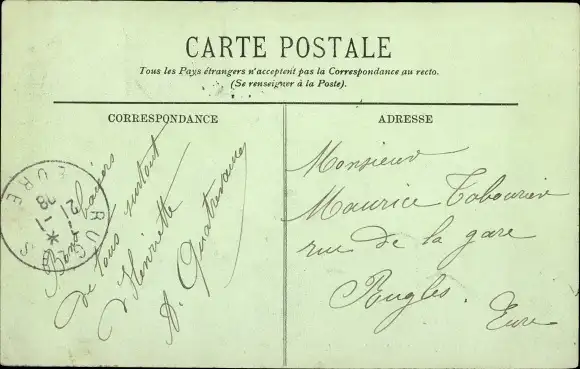 CARTE POSTALE
Tous les Pays étrangers n'acceptent pas la Correspondance au recto.
(Se renseigner à la Poste).
CORRESPONDANCE
Bons baisers
de tous surtout
d'Henriette
A. Quatresannes
ADRESSE
Monsieur
Maurice Tabourier
rue de la gare
Rugles.
Eure
RUGLES
EURE